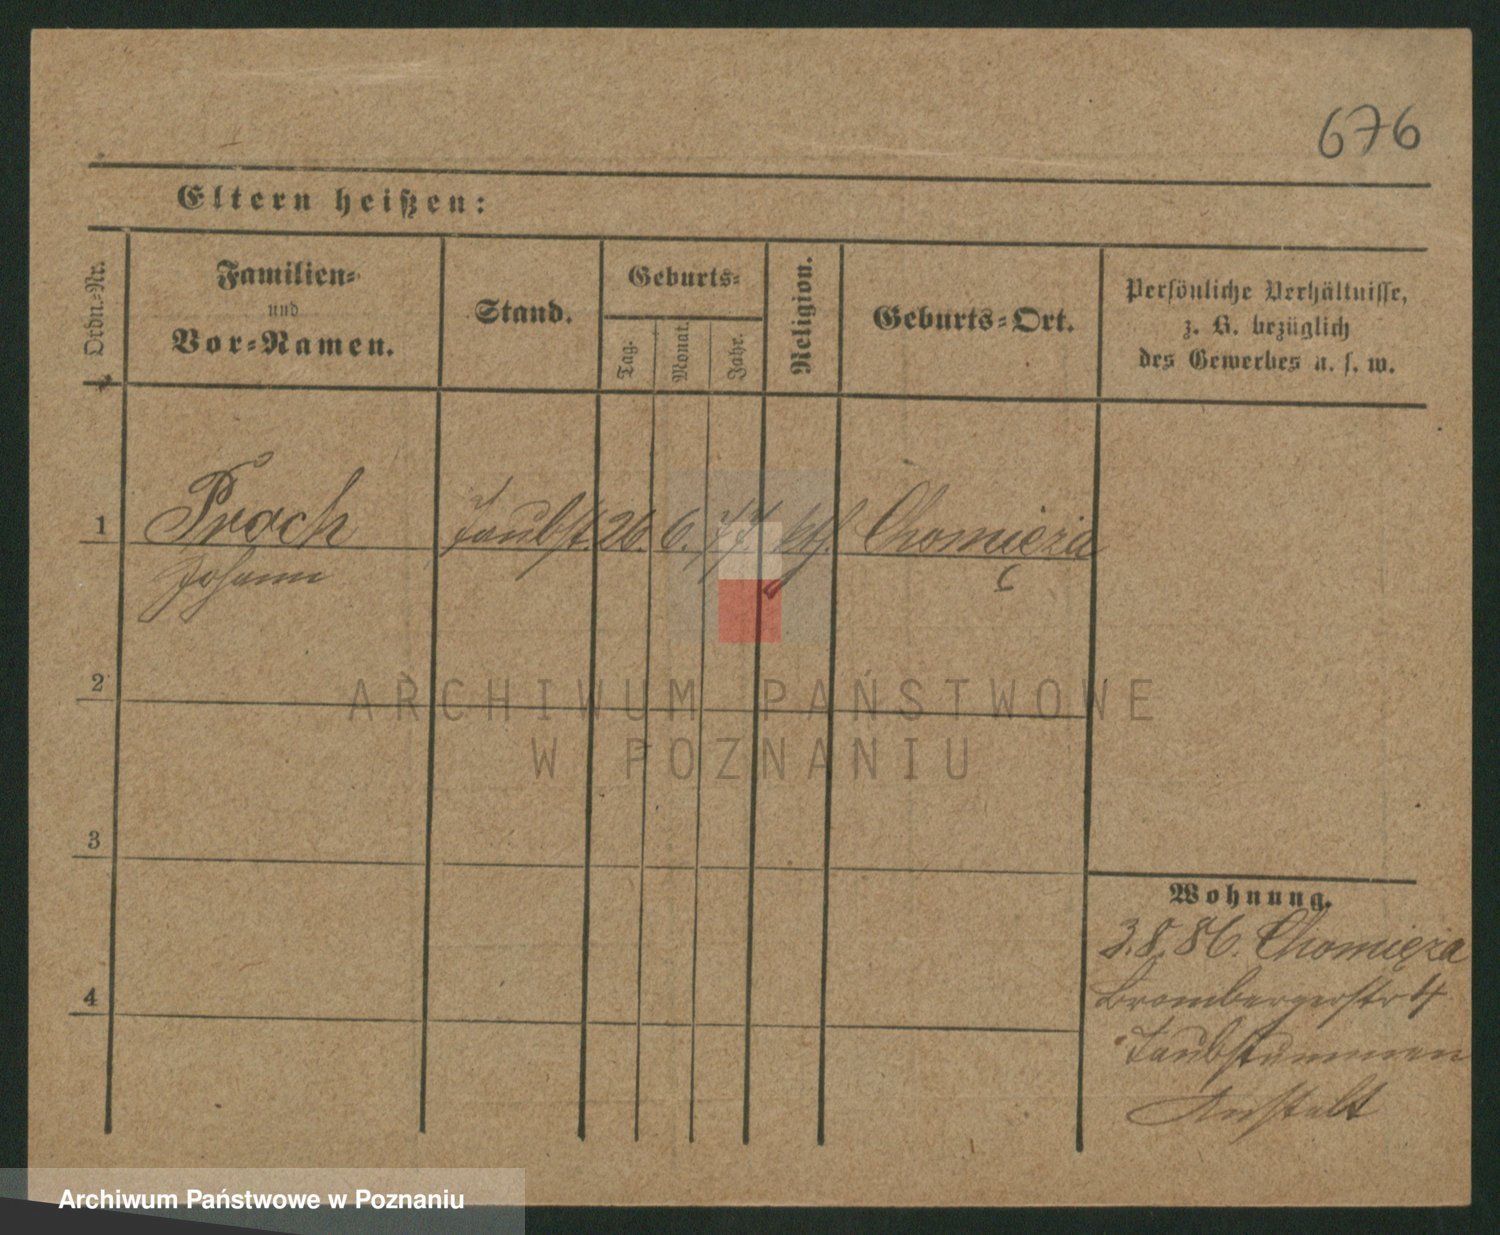 676
Eltern heißen:
Ordn.-Nr.
Familien-
und
Vor-Namen.
Stand.
Geburts-
Tag.
Monat.
Jahr.
Religion.
Geburts-Ort.
Persönliche Verhältnisse,
z. B. bezüglich
des Gewerbes u. s. w.
1 Prach Taubst. 26. 6. 77 kth. Chomięża
Johann
2
ARCHIWUM PAŃSTWOWE
W POZNANIU
3
Wohnung.
3.8.86. Chomięża
4
Brombergerstr 4
Taubstummen
Anstalt
Archiwum Państwowe w Poznaniu